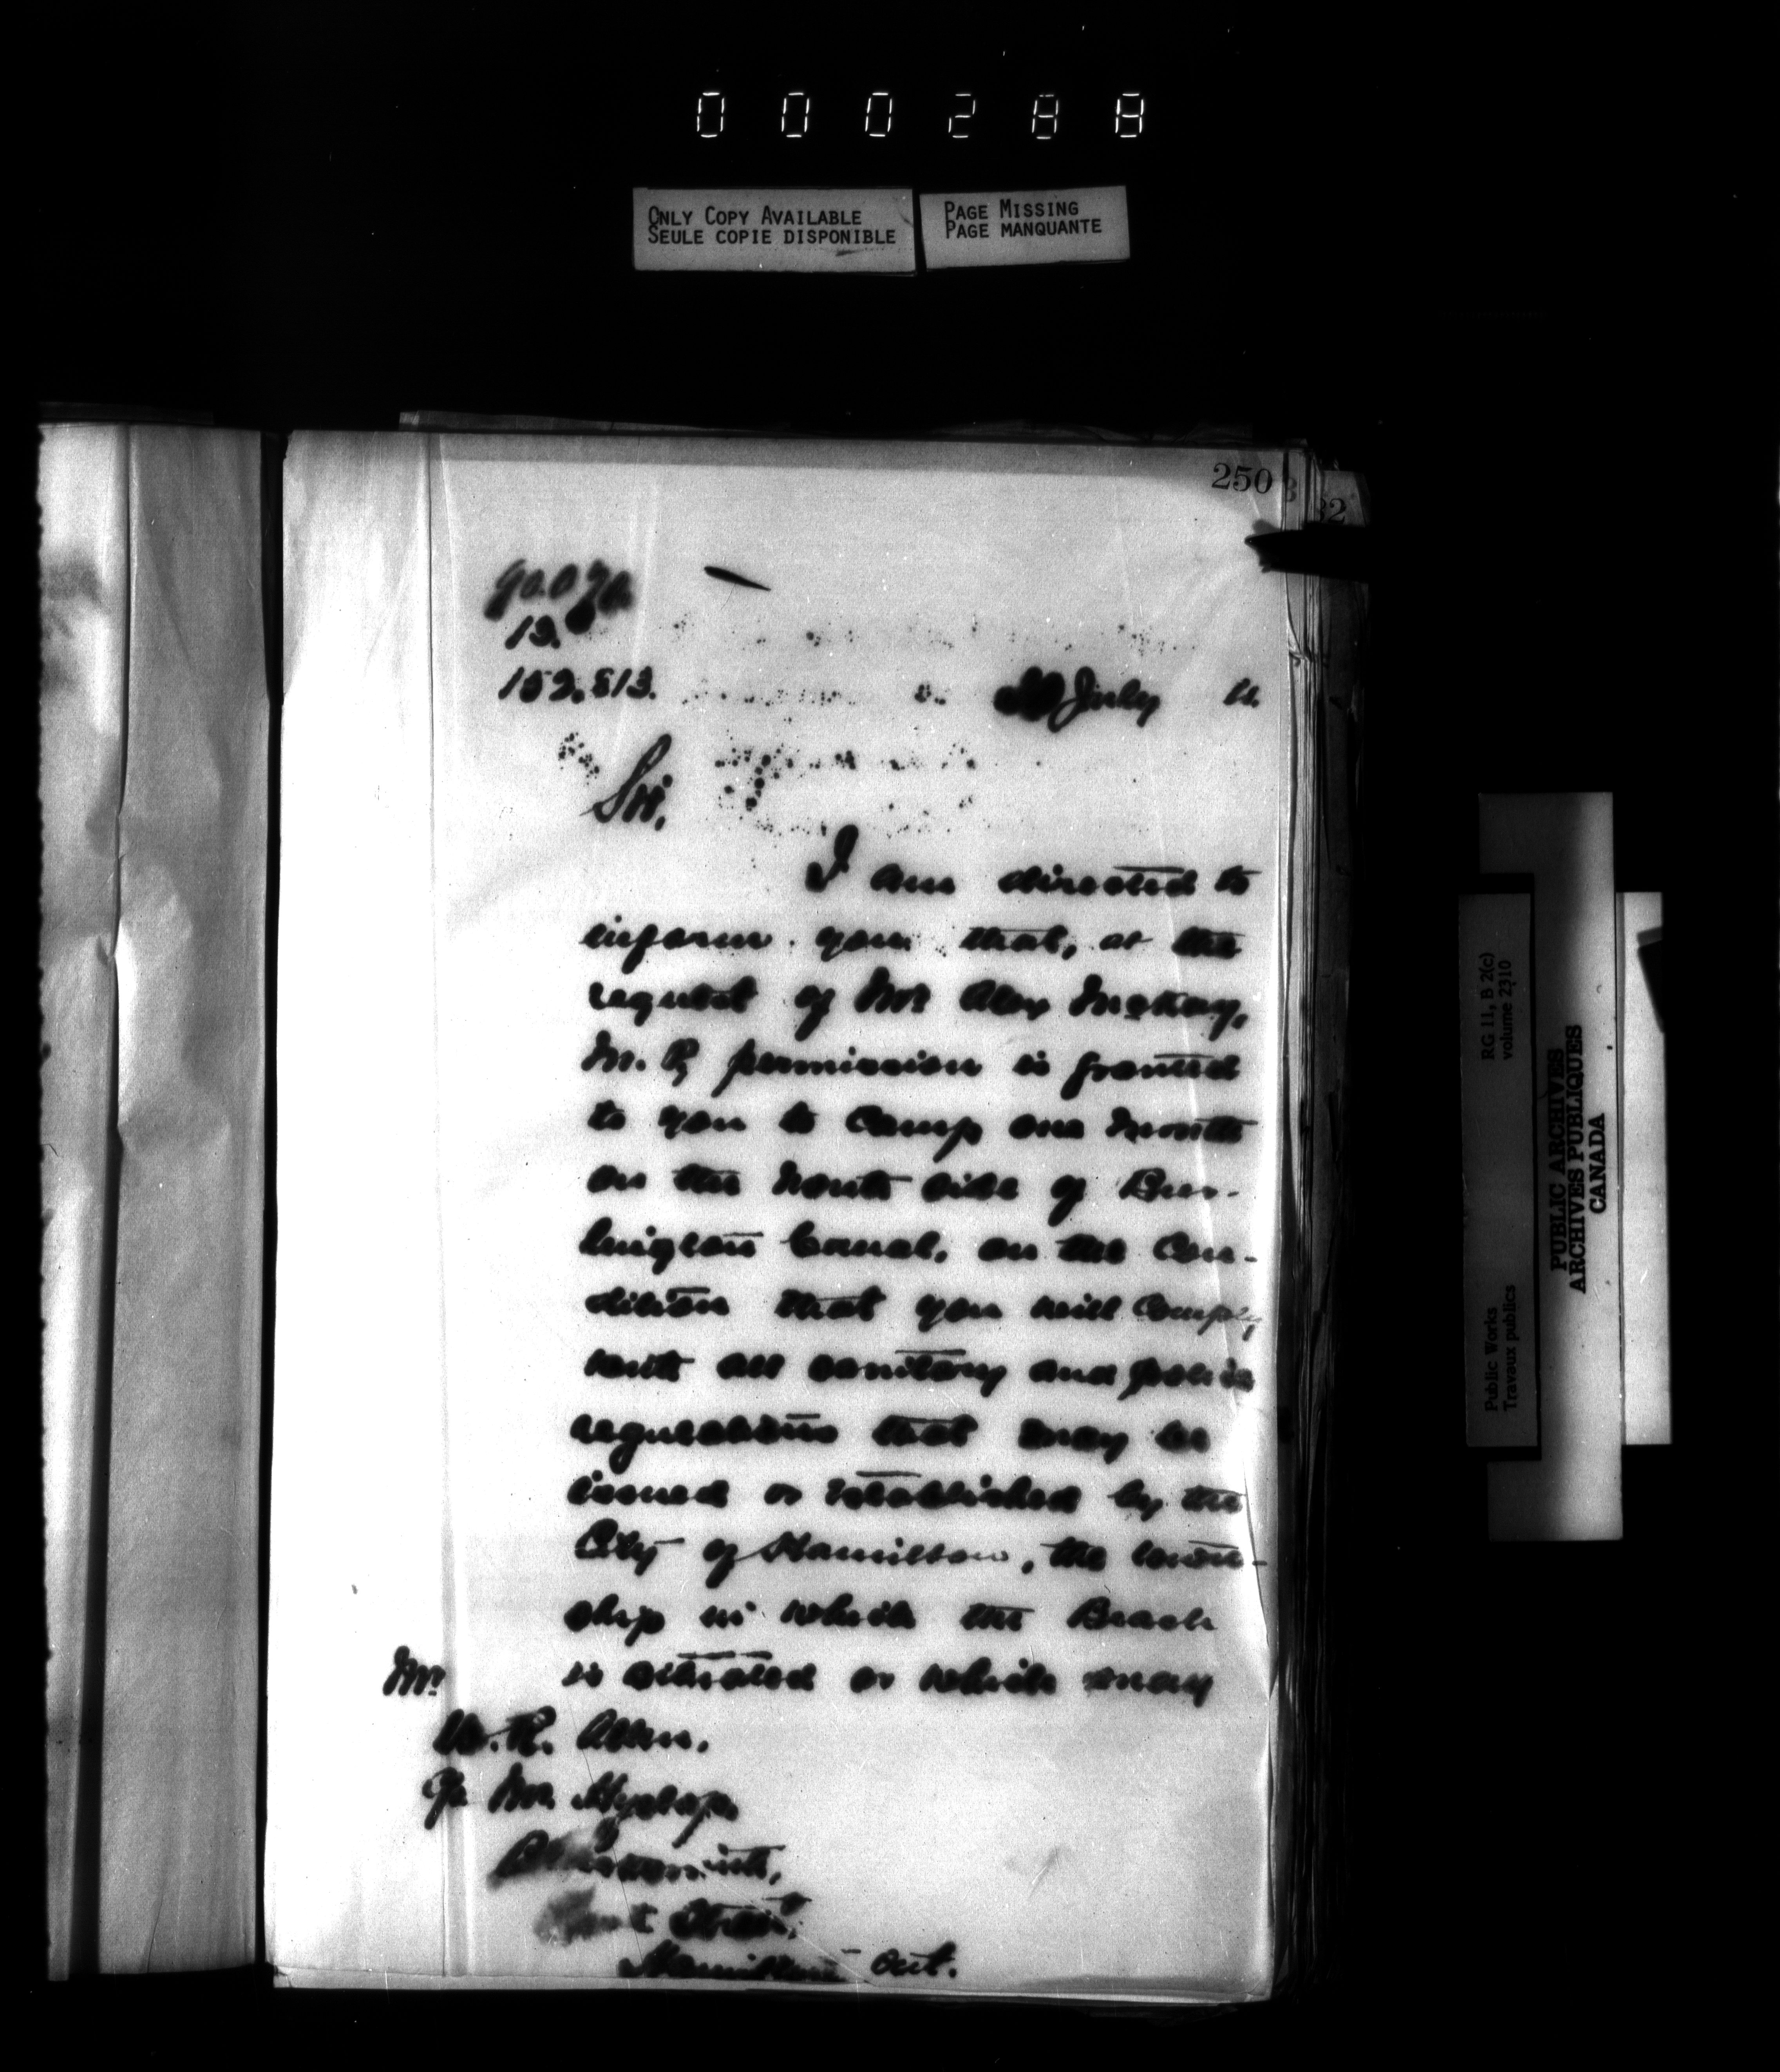 000288
ONLY COPY AVAILABLE
SEULE COPIE DISPONIBLE
PAGE MISSING
PAGE MANQUANTE
250
32
13.
152.513.
July
Sir,
I am directed to
inform you that, at the
request of Mr Alex McKay,
M. P., permission is granted
to you to camp one month
on the North side of Bur-
lington Canal, on the Con-
dition that you will comply
with all sanitary and police
regulations that may be
issued or established by the
City of Hamilton, the town-
ship in which the Beach
is situated or which may
Mr.
W. R. Allen,
Mr. Hyslop
Street,
Hamilton Ont.
Public Works
Travaux publics
RG 11, B 2(c)
volume 2310
PUBLIC ARCHIVES
ARCHIVES PUBLIQUES
CANADA